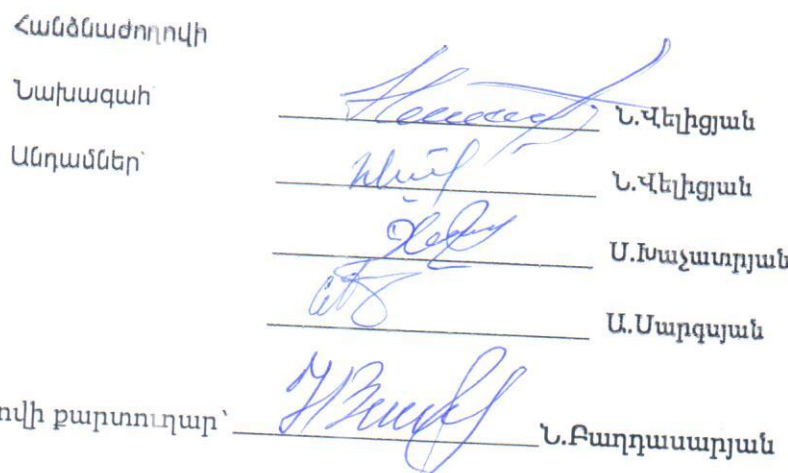 Հանձնաժողովի
Նախագահ Ն.Վելիցյան
Անդամներ՝ Ն.Վելիցյան
Ս.Խաչատրյան
Ա.Սարգսյան
ովի քարտուղար՝ Ն.Բաղդասարյան